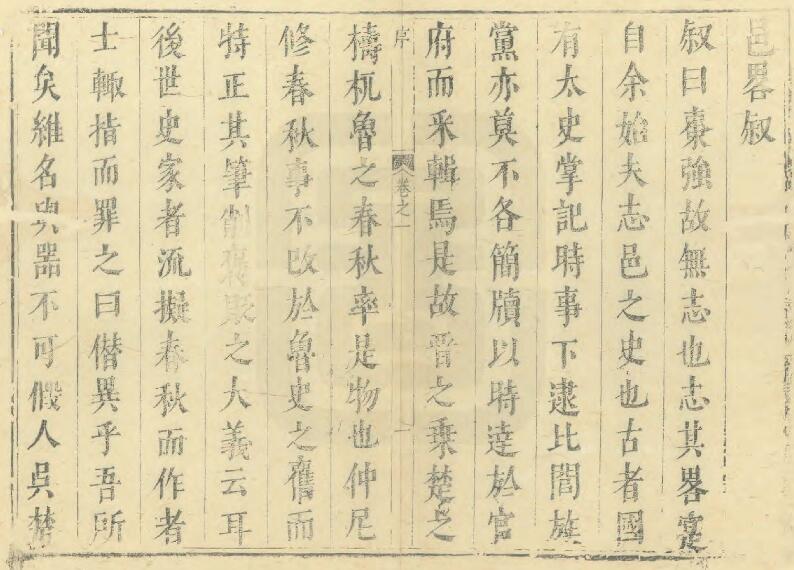 邑畧叙
叙曰棗強故無志也志其畧寔
自余始夫志邑之史也古者國
有太史掌記時事下逮比閭族
黨亦莫不各簡牘以時達於官
府而釆輯焉是故晋之乗楚之
序
卷之一
一
檮杌魯之春秋率是物也仲尼
修春秋事不改於魯史之舊而
特正其筆削褒貶之大義云耳
後世史家者流擬春秋而作者
士輙指而罪之曰僣異乎吾所
聞矣維名與器不可假人吳楚